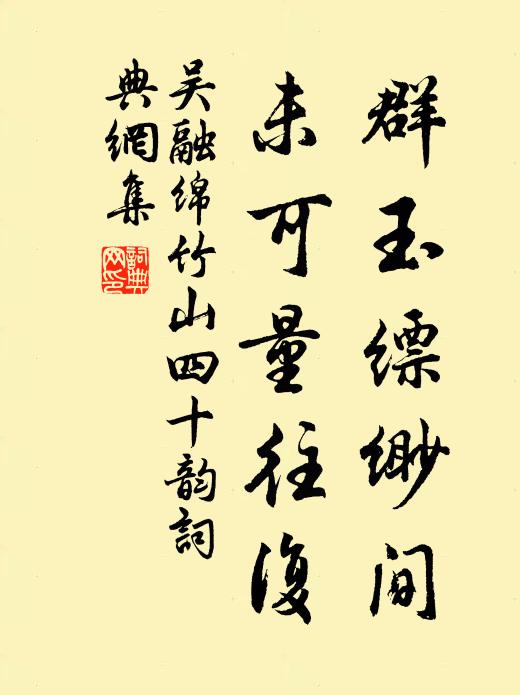 群玉缥缈间
未可量往復
吴融绵竹山四十韵詞
典網集
詞典網印